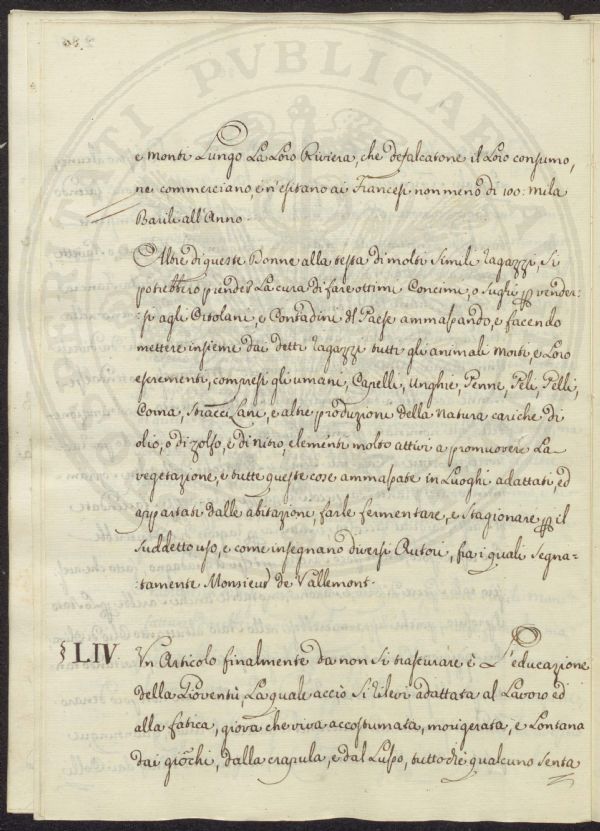 e monti Lungo La Loro Riviera, che defalcatone il Loro consumo,
ne commerciano, e n'esitano ai Francesi non meno di 100: mila
Barili all'Anno.
Oltre di queste Donne alla testa di molti simili ragazzi, si
potrebbero prender La cura di fare ottimi Concimi, o sughi per vender-
:si agli Ortolani, e Contadini del Paese ammassando, e facendo
mettere insieme dai detti ragazzi tutti gli animali morti, e Loro
escrementi, compresi gli umani, Capelli, Unghie, Penne, Peli, Pelli,
Corna, Stracci Lani, e altre produzioni della natura cariche di
olio, o di zolfo, e di nitro, elementi molto attivi a promuovere La
vegetazione, e tutte queste cose ammassate in Luoghi adattati, ed
appartati dalle abitazione, farle fermentare, e stagionare per il
suddetto uso, e come insegnano diversi Autori, fra i quali segna=
:tamente Monsieur de Vallemont.
§ LIV Un Articolo finalmente da non si trascurare è L'educazione
della Gioventù, La quale acciò si rilevi adattata al Lavoro ed
alla fatica, giova che viva accostumata, morigerata, e Lontana
dai giochi, dalla crapula, e dal Lusso, tutto dì è qualcuno senta